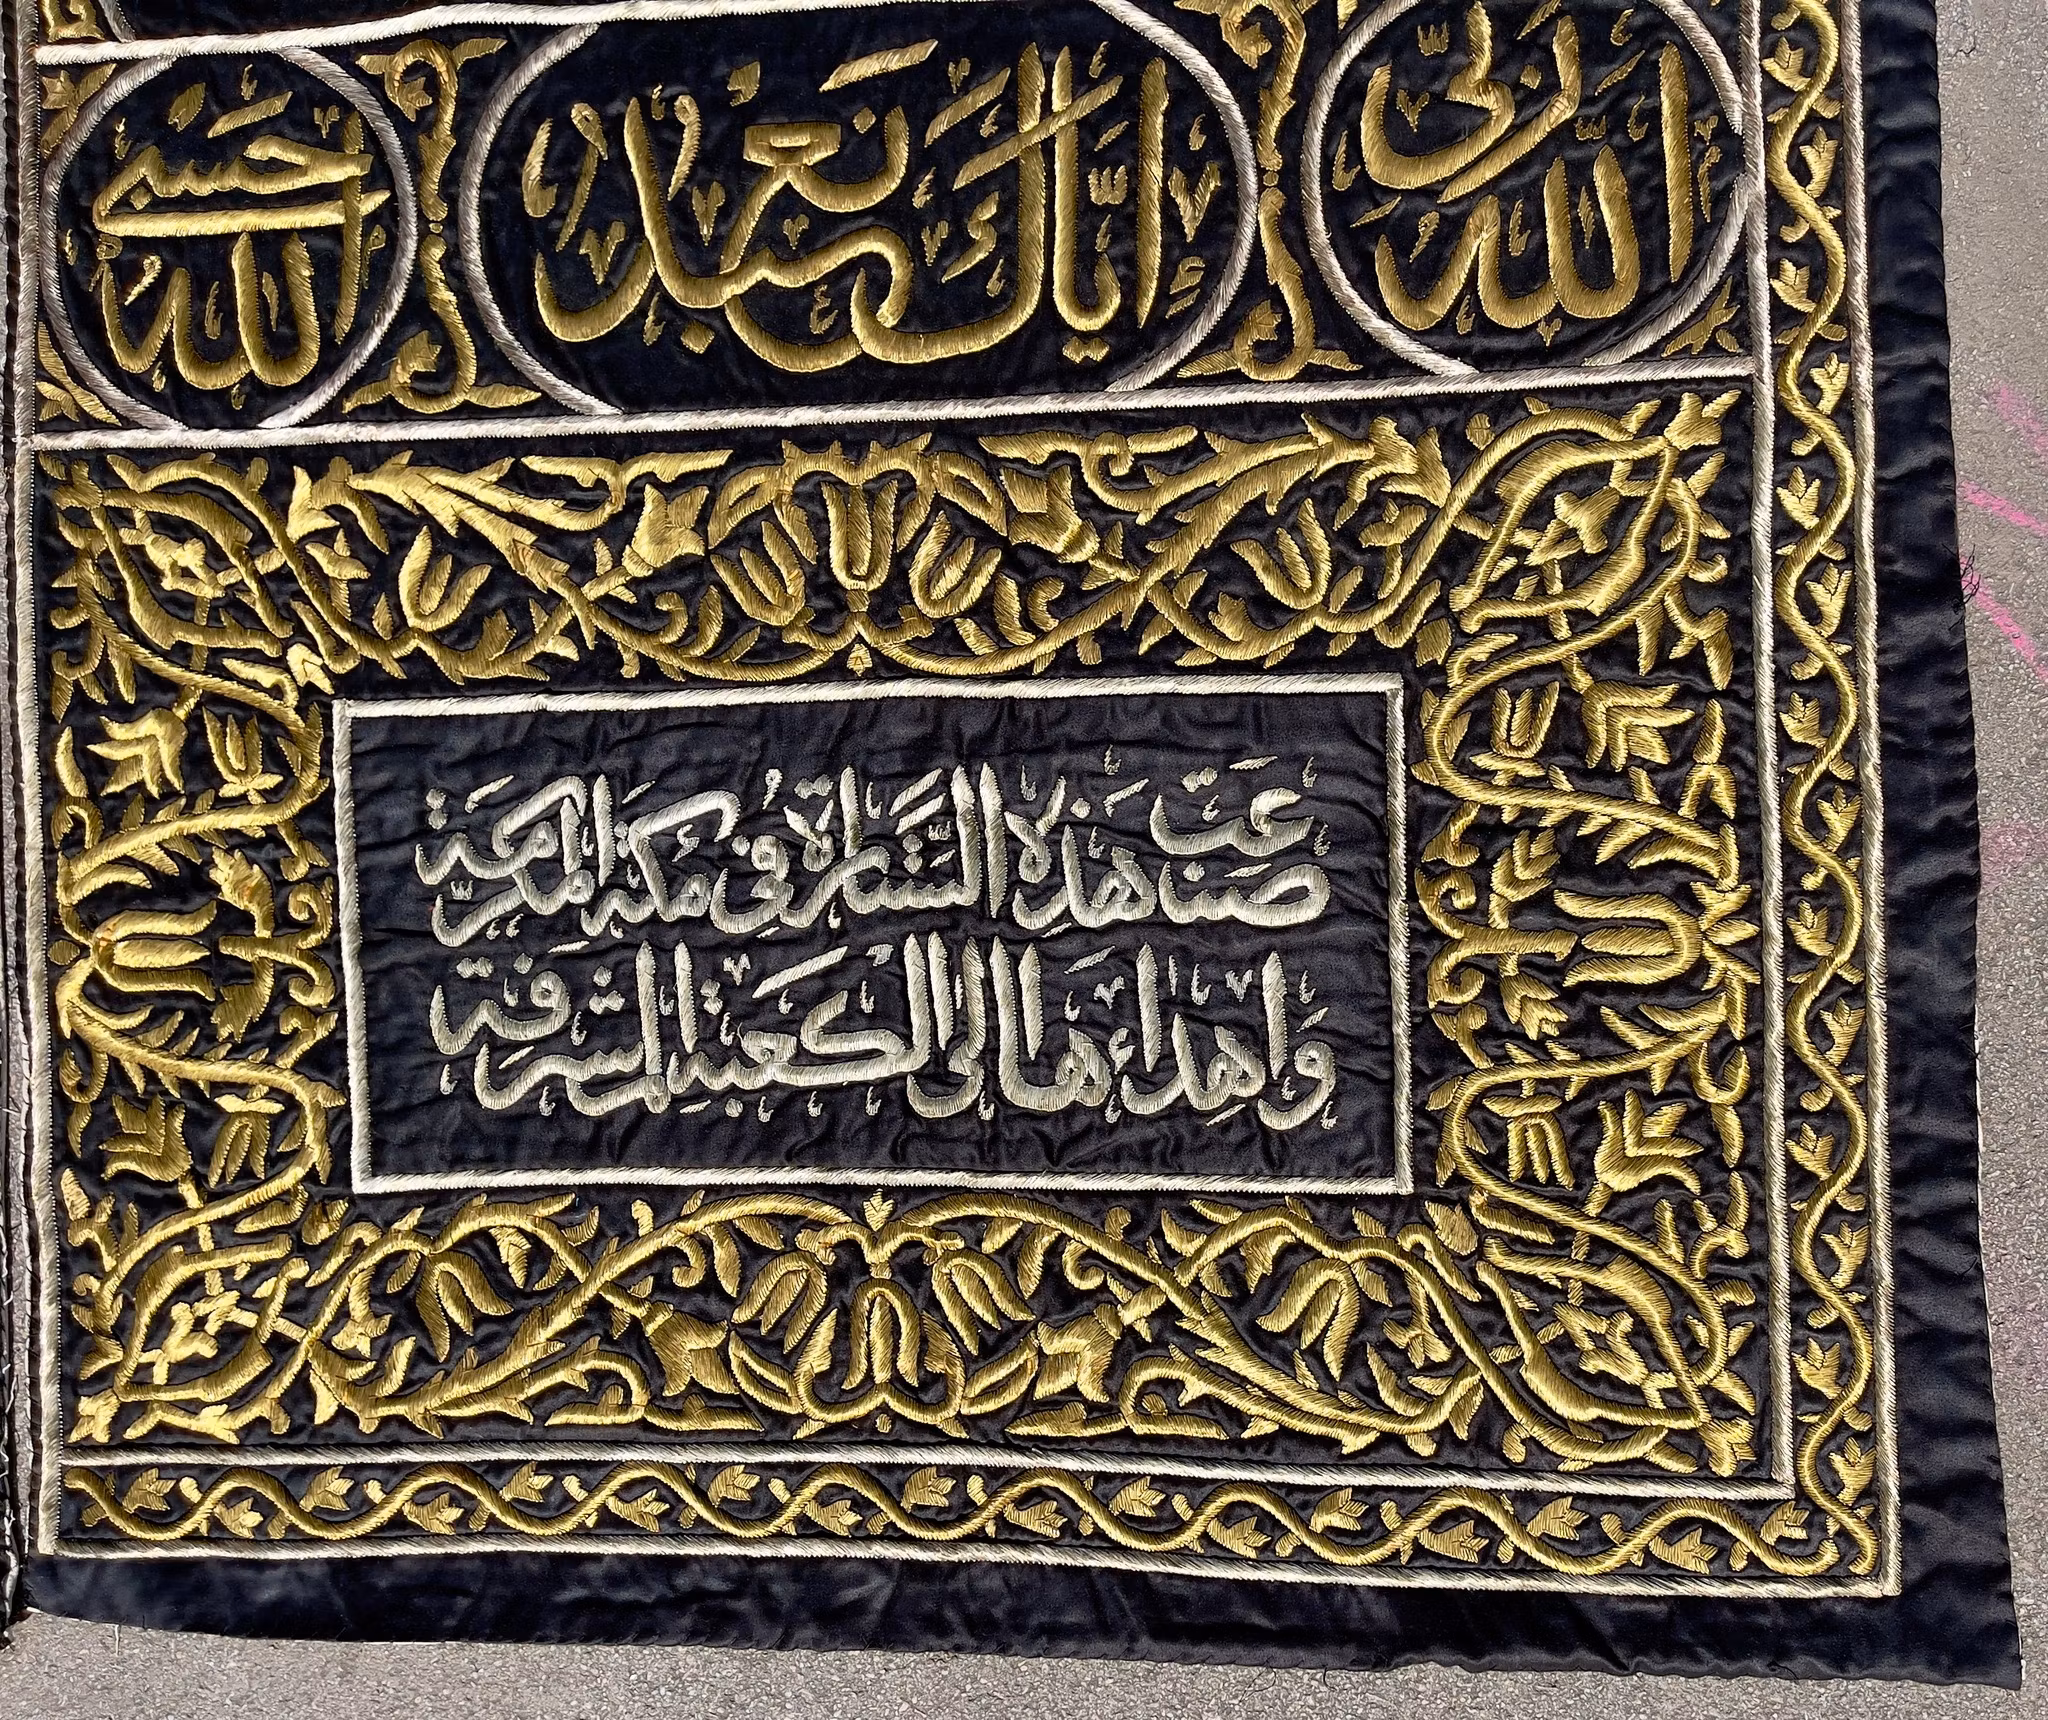 الله ربي إياك نعبد الله حسبي
صنعت هذه الستارة في مكة المكرمة
وإهدائها الى الكعبة المشرفة